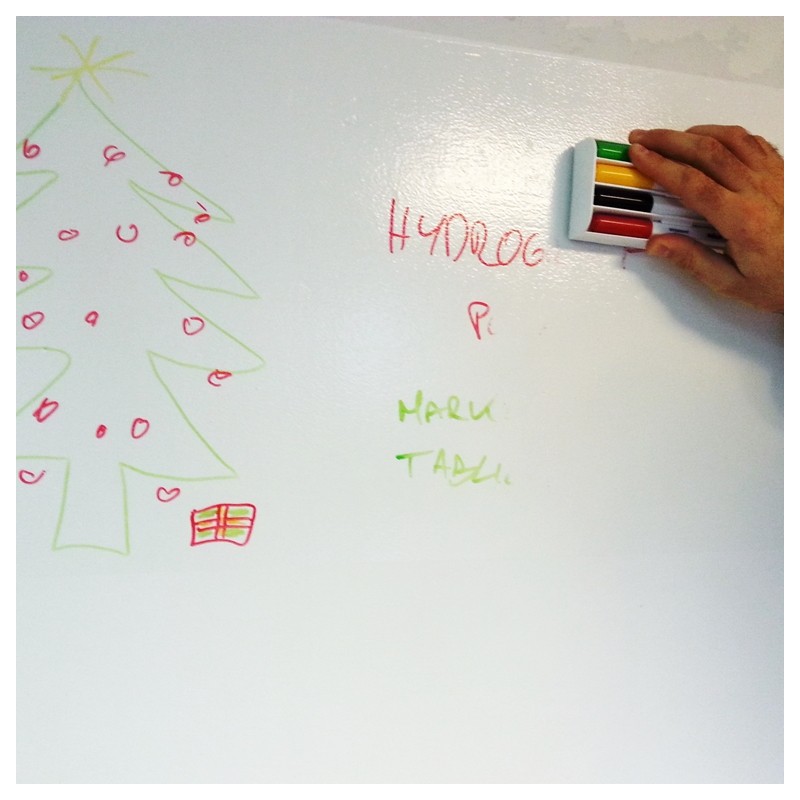 HYDROG
P
MARK
TABL